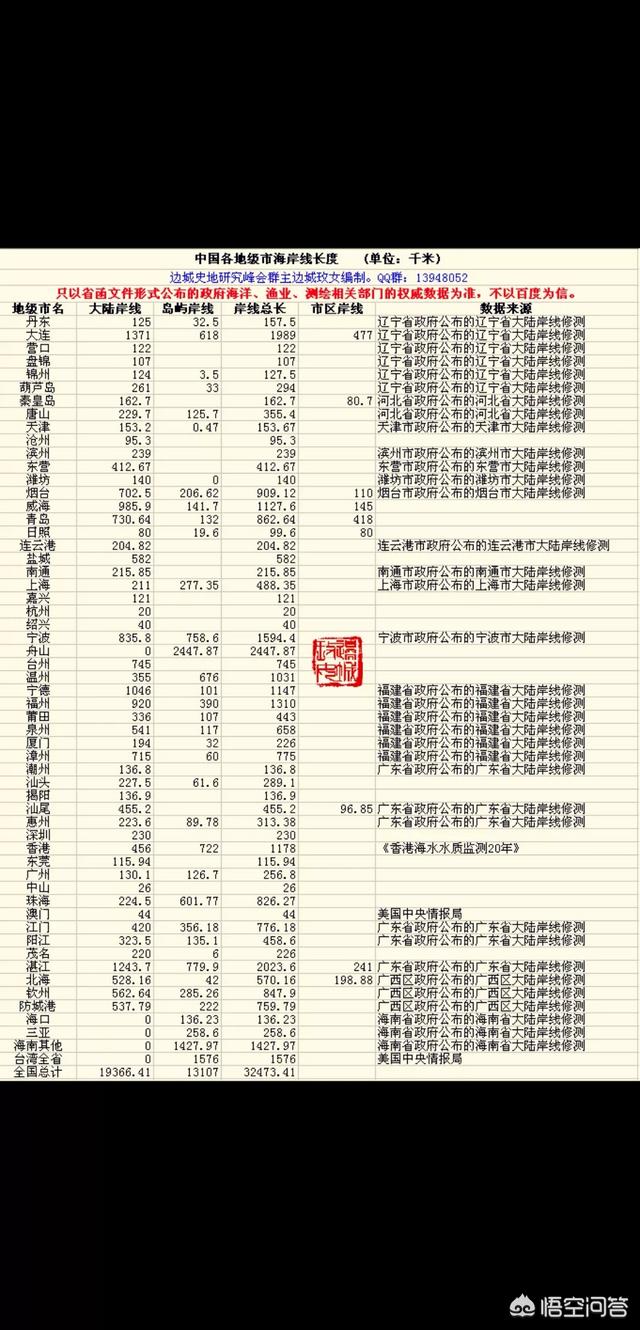 中国各地级市海岸线长度 (单位：千米)
边城史地研究峰会群主边城玫女编制。QQ群：13948052
只以省函文件形式公布的政府海洋、渔业、测绘相关部门的权威数据为准，不以百度为信。
地级市名 大陆岸线 岛屿岸线 岸线总长 市区岸线 数据来源
丹东 125 32.5 157.5 辽宁省政府公布的辽宁省大陆岸线修测
大连 1371 618 1989 477 辽宁省政府公布的辽宁省大陆岸线修测
营口 122 122 辽宁省政府公布的辽宁省大陆岸线修测
盘锦 107 107 辽宁省政府公布的辽宁省大陆岸线修测
锦州 124 3.5 127.5 辽宁省政府公布的辽宁省大陆岸线修测
葫芦岛 261 33 294 辽宁省政府公布的辽宁省大陆岸线修测
秦皇岛 162.7 162.7 80.7 河北省政府公布的河北省大陆岸线修测
唐山 229.7 125.7 355.4 河北省政府公布的河北省大陆岸线修测
天津 153.2 0.47 153.67 天津市政府公布的天津市大陆岸线修测
沧州 95.3 95.3
滨州 239 239 滨州市政府公布的滨州市大陆岸线修测
东营 412.67 412.67 东营市政府公布的东营市大陆岸线修测
潍坊 140 0 140 潍坊市政府公布的潍坊市大陆岸线修测
烟台 702.5 206.62 909.12 110 烟台市政府公布的烟台市大陆岸线修测
威海 985.9 141.7 1127.6 145
青岛 730.64 132 862.64 418
日照 80 19.6 99.6 80
连云港 204.82 204.82 连云港市政府公布的连云港市大陆岸线修测
盐城 582 582
南通 215.85 215.85 南通市政府公布的南通市大陆岸线修测
上海 211 277.35 488.35 上海市政府公布的上海市大陆岸线修测
嘉兴 121 121
杭州 20 20
绍兴 40 40
宁波 835.8 758.6 1594.4 宁波市政府公布的宁波市大陆岸线修测
舟山 0 2447.87 2447.87
台州 745 745
温州 355 676 1031
宁德 1046 101 1147 福建省政府公布的福建省大陆岸线修测
福州 920 390 1310 福建省政府公布的福建省大陆岸线修测
莆田 336 107 443 福建省政府公布的福建省大陆岸线修测
泉州 541 117 658 福建省政府公布的福建省大陆岸线修测
厦门 194 32 226 福建省政府公布的福建省大陆岸线修测
漳州 715 60 775 福建省政府公布的福建省大陆岸线修测
潮州 136.8 136.8 广东省政府公布的广东省大陆岸线修测
汕头 227.5 61.6 289.1
揭阳 136.9 136.9
汕尾 455.2 455.2 96.85 广东省政府公布的广东省大陆岸线修测
惠州 223.6 89.78 313.38 广东省政府公布的广东省大陆岸线修测
深圳 230 230
香港 456 722 1178 《香港海水水质监测20年》
东莞 115.94 115.94
广州 130.1 126.7 256.8
中山 26 26
珠海 224.5 601.77 826.27
澳门 44 44 美国中央情报局
江门 420 356.18 776.18 广东省政府公布的广东省大陆岸线修测
阳江 323.5 135.1 458.6 广东省政府公布的广东省大陆岸线修测
茂名 220 6 226
湛江 1243.7 779.9 2023.6 241 广东省政府公布的广东省大陆岸线修测
北海 528.16 42 570.16 198.88 广西区政府公布的广西区大陆岸线修测
钦州 562.64 285.26 847.9 广西区政府公布的广西区大陆岸线修测
防城港 537.79 222 759.79 广西区政府公布的广西区大陆岸线修测
海口 0 136.23 136.23 海南省政府公布的海南省大陆岸线修测
三亚 0 258.6 258.6 海南省政府公布的海南省大陆岸线修测
海南其他 0 1427.97 1427.97 海南省政府公布的海南省大陆岸线修测
台湾全省 0 1576 1576 美国中央情报局
全国总计 19366.41 13107 32473.41
悟空问答